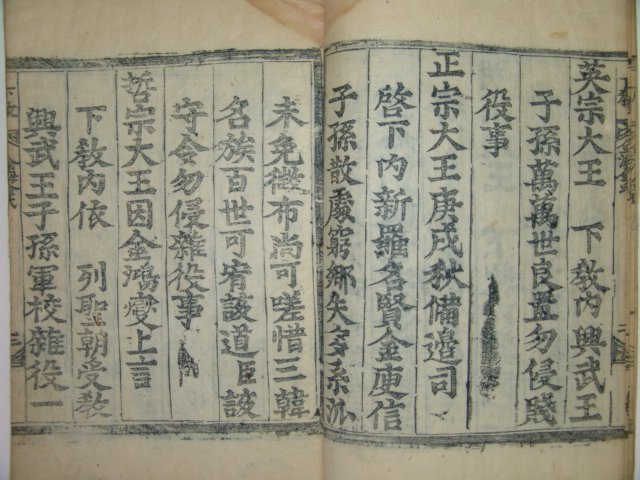 英宗大王 下教內興武王
子孫萬萬世良置勿侵賤
役事
正宗大王庚戌秋備邊司
啓下內新羅名賢金庾信
子孫散處窮鄉失系派
未免徵布尚可嗟惜三韓
名族百世可宥該道臣該
守令勿侵雜役事
哲宗大王因金鴻爕上言
下教內依 列聖朝受教
興武王子孫軍校雜役一